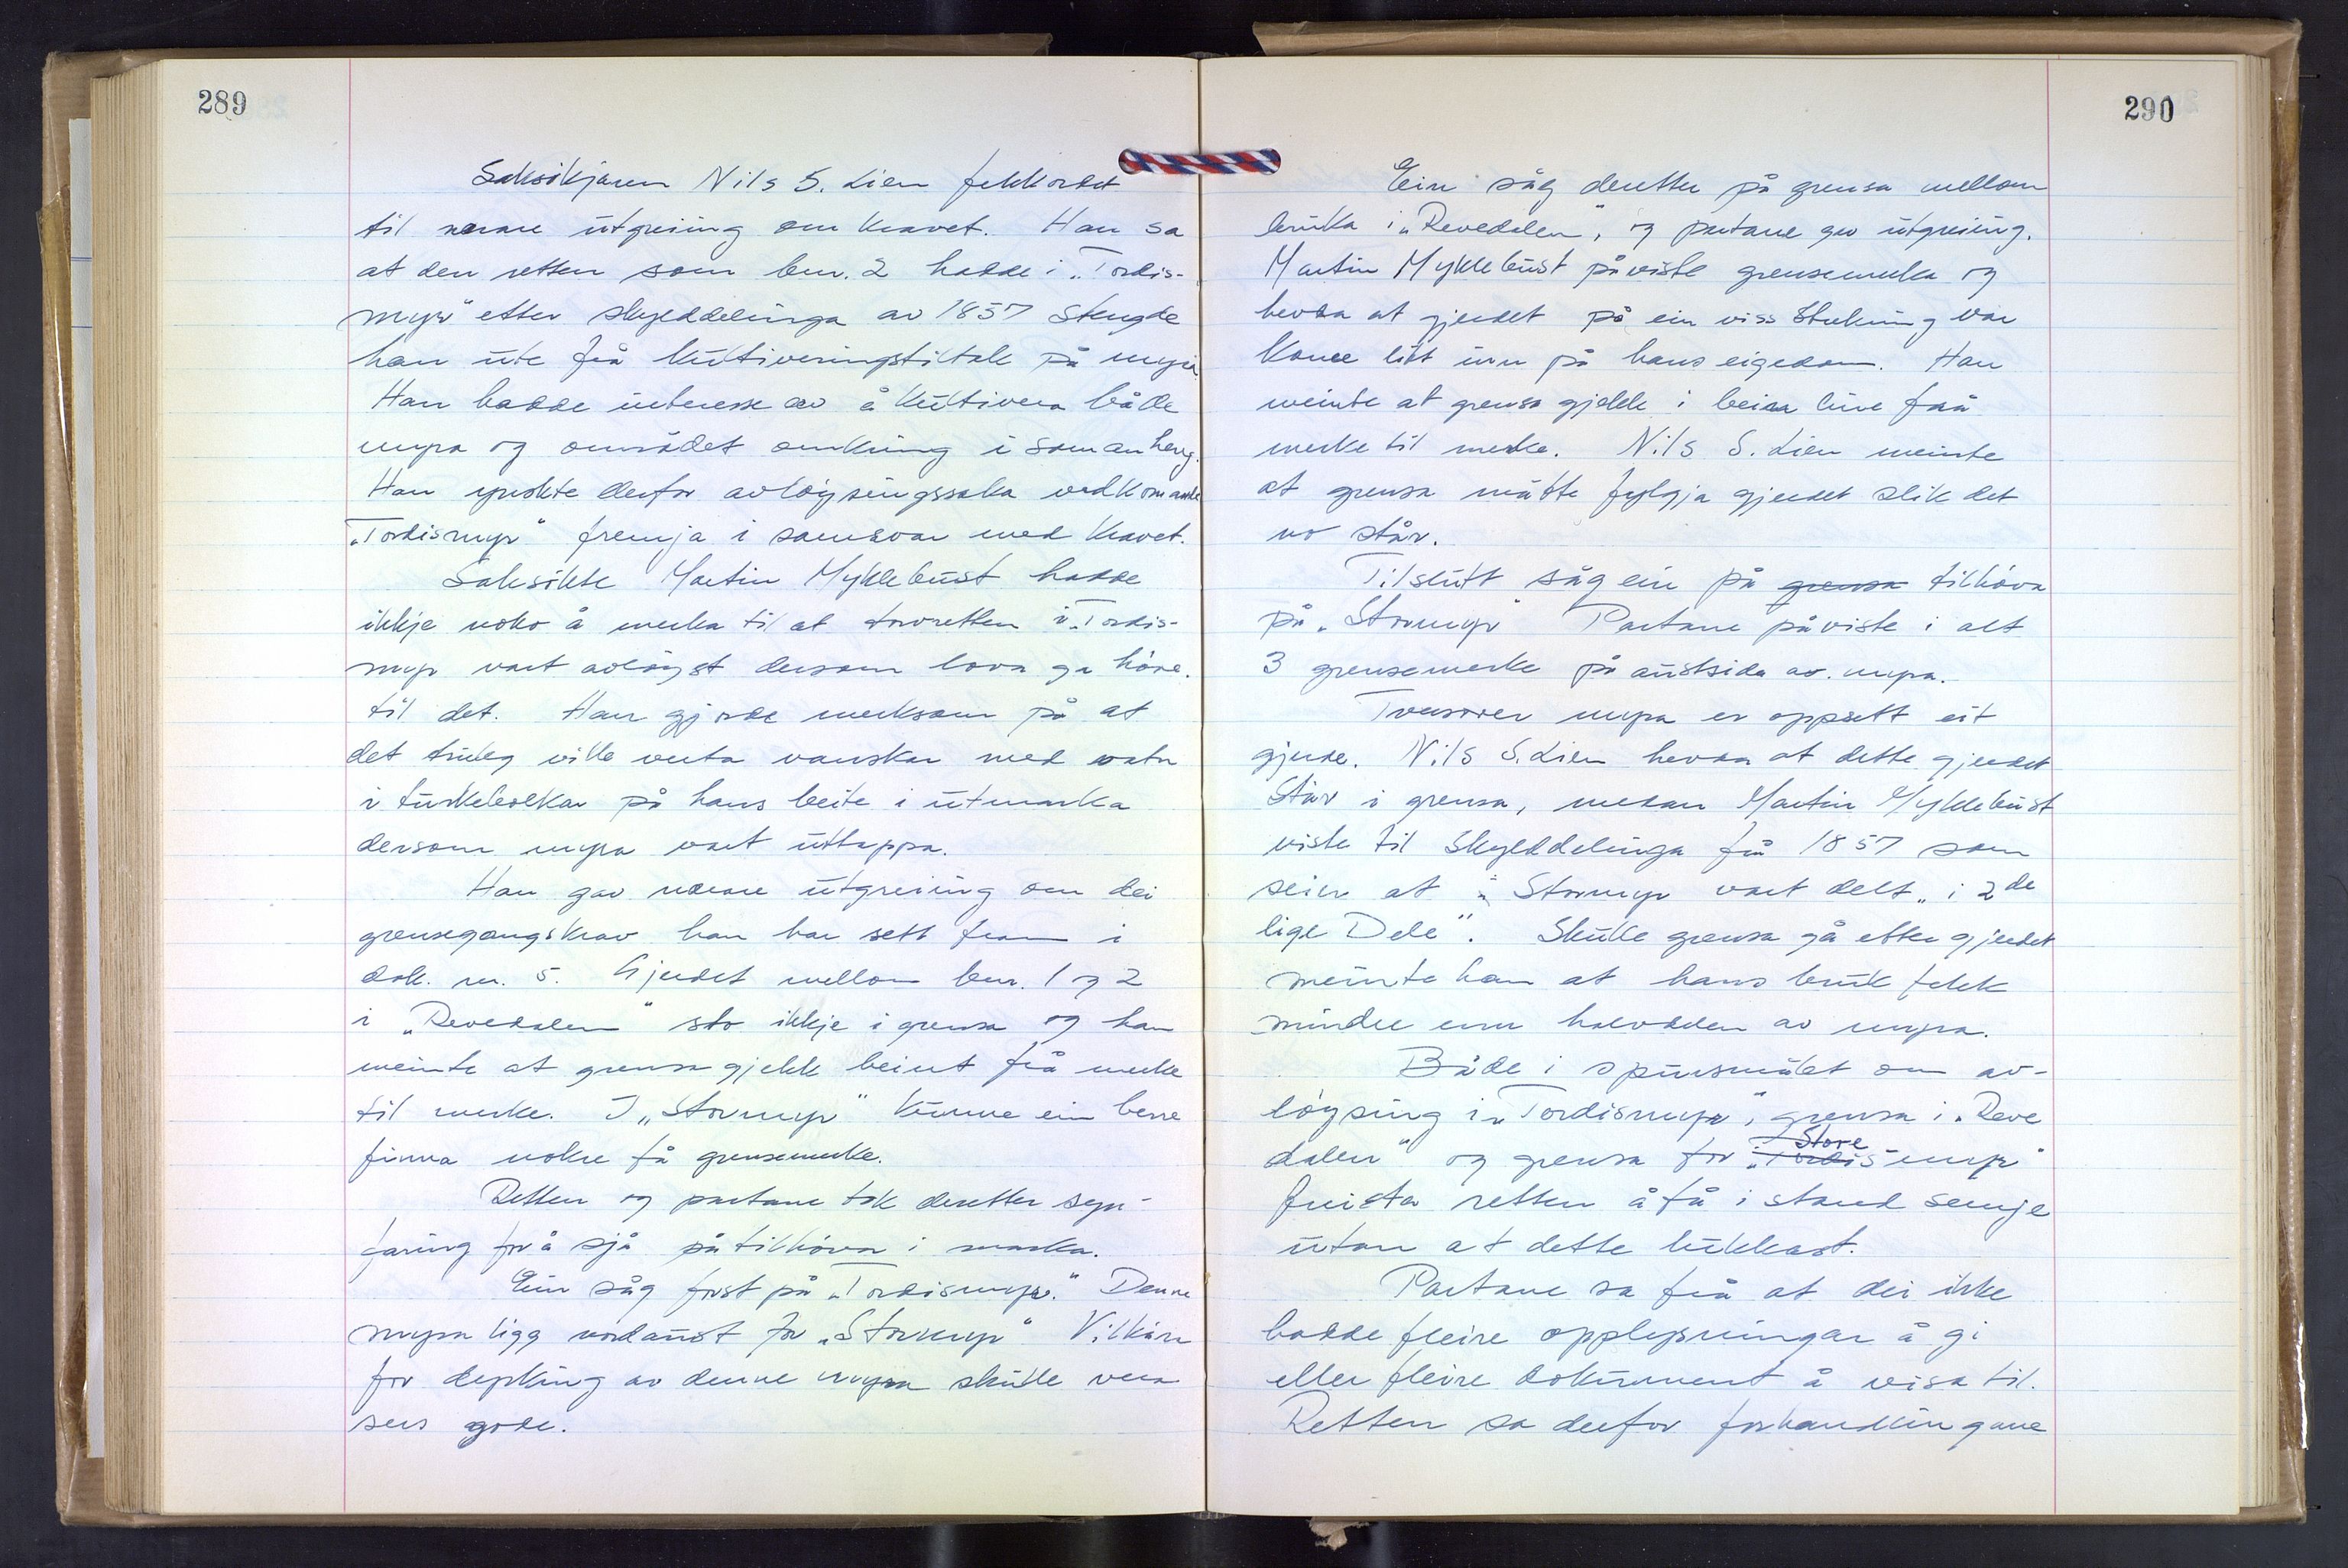 289
Saksøkjaren Nils S. Lien fekk ordet
til nærare utgreiing om kravet. Han sa
at den retten som bnr. 2 hadde i „Tordis-
myr" etter skylddelinga av 1857 stengde
han ute frå kultiveringstiltak på myra.
Han hadde interesse av å kultivera både
myra og området omkring i samanheng.
Han ynskte derfor avløysingssaka vedkomande
„Tordismyr" fremja i samsvar med kravet.
Saksøkte Martin Myklebust hadde
ikkje noko å merka til at torvretten i „Tordis-
myr vart avløyst dersom lova ga høve.
til det. Han gjorde merksam på at
det truleg ville verta vanskar med vatn
i turkebolkar på hans beite i utmarka
dersom myra vart uttappa.
Han gav nærare utgreiing om dei
grensegangskrav han har sett fram i
dok. nr. 5. Gjerdet mellom bnr. 1 og 2
i „Revedalen" sto ikkje i grensa og han
meinte at grensa gjekk beint frå merke
til merke. I „Stormyr" kunne ein berre
finna nokre få grensemerke.
Retten og partane tok deretter syn-
faring for å sjå på tilhøva i marka.
Ein såg først på „Tordismyr." Denne
myra ligg nordaust for „Stormyr" Vilkåra
for dyrking av denne myra skulle vera
sers gode.
290
Ein såg deretter på grensa mellom
bruka i „Revedalen", og partane gav utgreiing.
Martin Myklebust påviste grensemerka og
hevda at gjerdet på ein viss strekning var
kome litt inn på hans eigedom. Han
meinte at grensa gjekk i beina line frå
merke til merke. Nils S. Lien meinte
at grensa måtte fylgja gjerdet slik det
no står.
Tilslutt såg ein på grensa tilhøva
på „Stormyr" Partane påviste i alt
3 grensemerke på austsida av myra.
Tversover myra er oppsett eit
gjerde. Nils S. Lien hevda at dette gjerdet
står i grensa, medan Martin Myklebust
viste til skylddelinga frå 1857 som
seier at Stormyr vart delt „i 2de
lige Dele". Skulle grensa gå etter gjerdet
meinte han at hans bruk fekk
mindre enn halvdelen av myra.
Både i spursmålet om av-
løysing i „Tordismyr", grensa i „Reve
dalen" og grensa for „Tordis Store myr"
freista retten å få i stand semje
utan at dette lukkast.
Partane sa frå at dei ikke
hadde fleire opplysningar å gi
eller fleire dokument å visa til.
Retten sa derfor forhandlingane